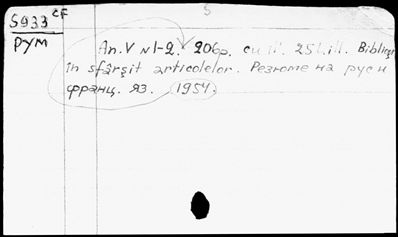 S933 CF
РУМ
An. V №1-2. 206p. cu il. 25 l. il. Bibliogr
în sfârşit articolelor. Резюме на рус и
франц. яз. 1954.